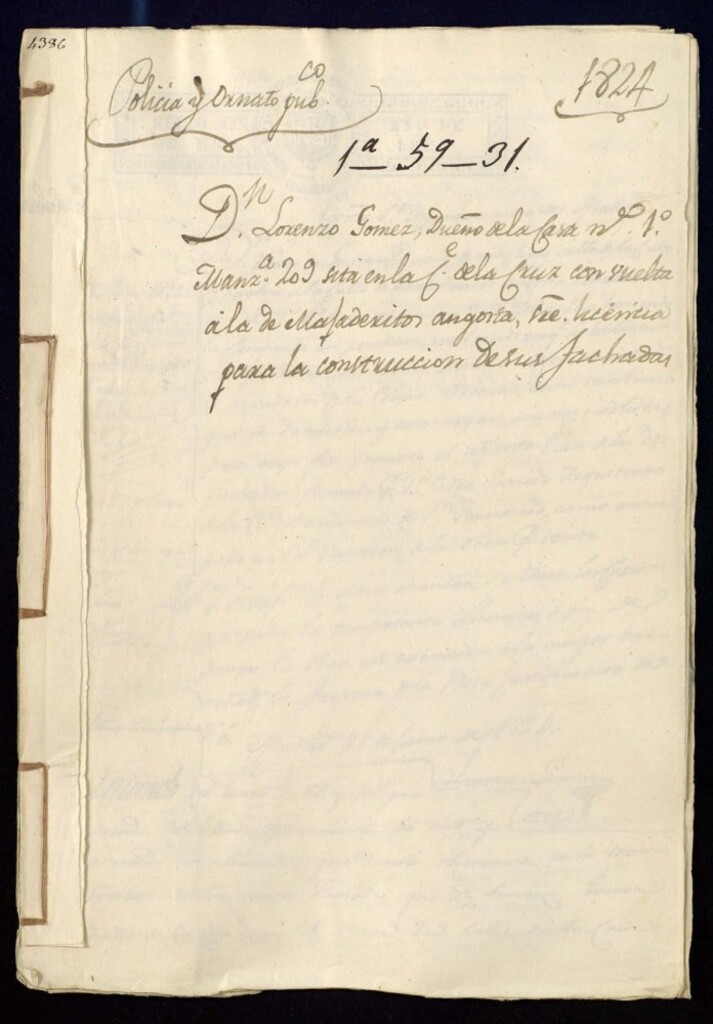 4386
Policia y Ornato pub.co
1824
1ª 59-31.
Dn. Lorenzo Gomez, Dueño de la Casa nº. 1º
Manz.ª 209 sita en la C.e de la Cruz con vuelta
á la de Majaderitos angosta, sre. licencia
para la construccion de sus fachadas